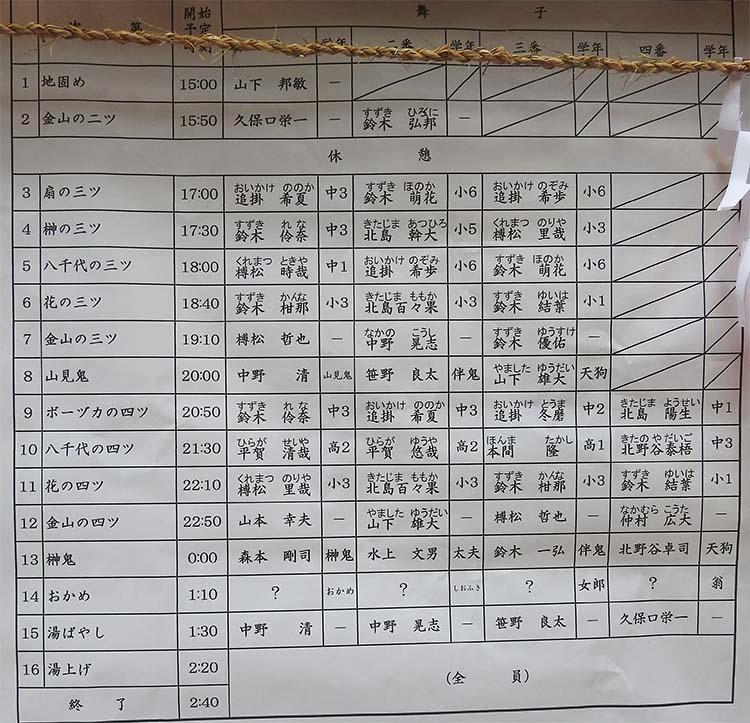 次 第 開始予定時刻 舞 子
学年 二番 学年 三番 学年 四番 学年
1 地固め 15:00 山下 邦敏 ―
2 金山の二ツ 15:50 久保口栄一 ― 鈴木 弘邦 ―
休 憩
おいかけ ののか すずき ほのか おいかけ のぞみ
3 扇の三ツ 17:00 追掛 希夏 中3 鈴木 萌花 小6 追掛 希歩 小6
すずき れな きたじま あつひろ くれまつ のりや
4 榊の三ツ 17:30 鈴木 伶奈 中3 北島 幹大 小5 樽松 里哉 小3
くれまつ ときや おいかけ のぞみ すずき ほのか
5 八千代の三ツ 18:00 樽松 時哉 中1 追掛 希歩 小6 鈴木 萌花 小6
すずき かんな きたじま ももか すずき ゆいは
6 花の三ツ 18:40 鈴木 柑那 小3 北島百々果 小3 鈴木 結葉 小1
なかの こうし すずき ゆうすけ
7 金山の三ツ 19:10 樽松 哲也 ― 中野 晃志 ― 鈴木 優佑 ―
やました ゆうだい
8 山見鬼 20:00 中野 清 山見鬼 笹野 良太 伴鬼 山下 雄大 天狗
すずき れな おいかけ ののか おいかけ とうま きたじま ようせい
9 ボーヅカの四ツ 20:50 鈴木 伶奈 中3 追掛 希夏 中3 追掛 冬磨 中2 北島 陽生 中1
ひらが せいや ひらが ゆうや ほんま たかし きたのや だいご
10 八千代の四ツ 21:30 平賀 清哉 高2 平賀 悠哉 高2 本間 隆 高1 北野谷泰梧 中3
くれまつ のりや きたじま ももか すずき かんな すずき ゆいは
11 花の四ツ 22:10 樽松 里哉 小3 北島百々果 小3 鈴木 柑那 小3 鈴木 結葉 小1
やました ゆうだい なかむら こうた
12 金山の四ツ 22:50 山本 幸夫 ― 山下 雄大 ― 樽松 哲也 ― 仲村 広大 ―
13 榊鬼 0:00 森本 剛司 榊鬼 水上 文男 太夫 鈴木 一弘 伴鬼 北野谷卓司 天狗
14 おかめ 1:10 ? おかめ ? しおふき ? 女郎 ? 翁
15 湯ばやし 1:30 中野 清 ― 中野 晃志 ― 笹野 良太 ― 久保口栄一 ―
16 湯上げ 2:20 (全 員)
終 了 2:40